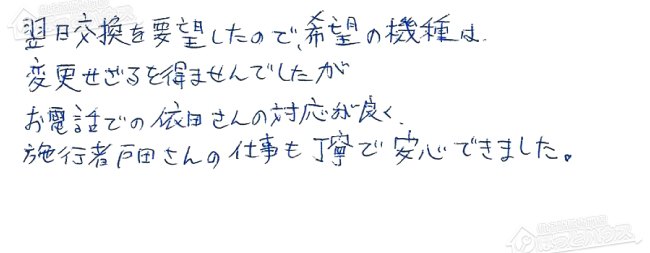 翌日交換を要望したので、希望の機種は
変更せざるを得ませんでしたが
お電話での依田さんの対応が良く、
施行者戸田さんの仕事も丁寧で安心できました。